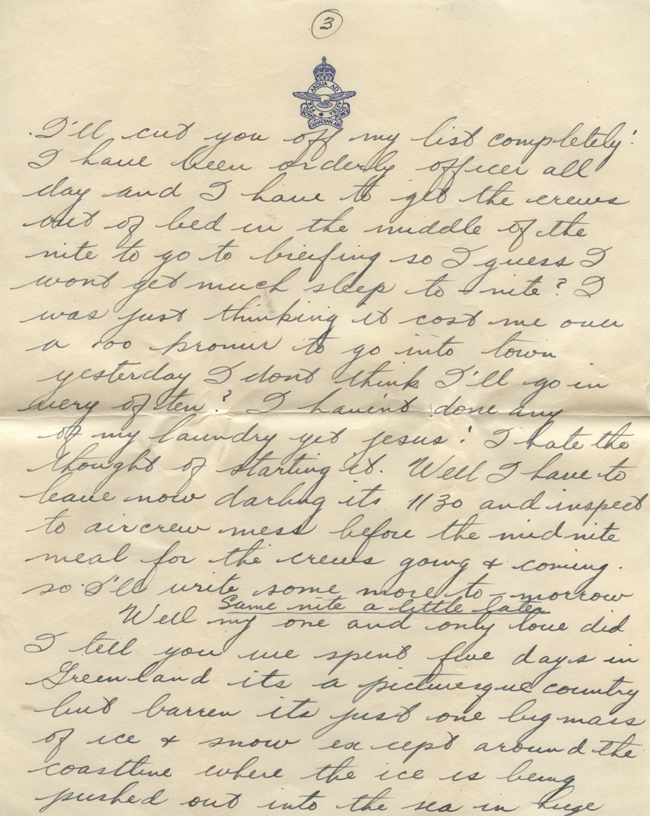 3
I'll cut you off my list completely!
I have been orderly officer all
day and I have to get the crews
out of bed in the middle of the
nite to go to briefing so I guess I
wont get much sleep to-nite? I
was just thinking it cost me over
a 100 kronur to go into town
yesterday I dont think I'll go in
very often? I havn't done any
of my laundry yet jesus! I hate the
thought of starting it. Well I have to
leave now darling its 1130 and inspect
to aircrew mess before the midnite
meal for the crews going & coming.
so I'll write some more to-morrow
Same nite a little later
Well my one and only love did
I tell you we spent five days in
Greenland its a picturesque country
but barren its just one big mass
of ice & snow except around the
coastline where the ice is being
pushed out into the sea in huge